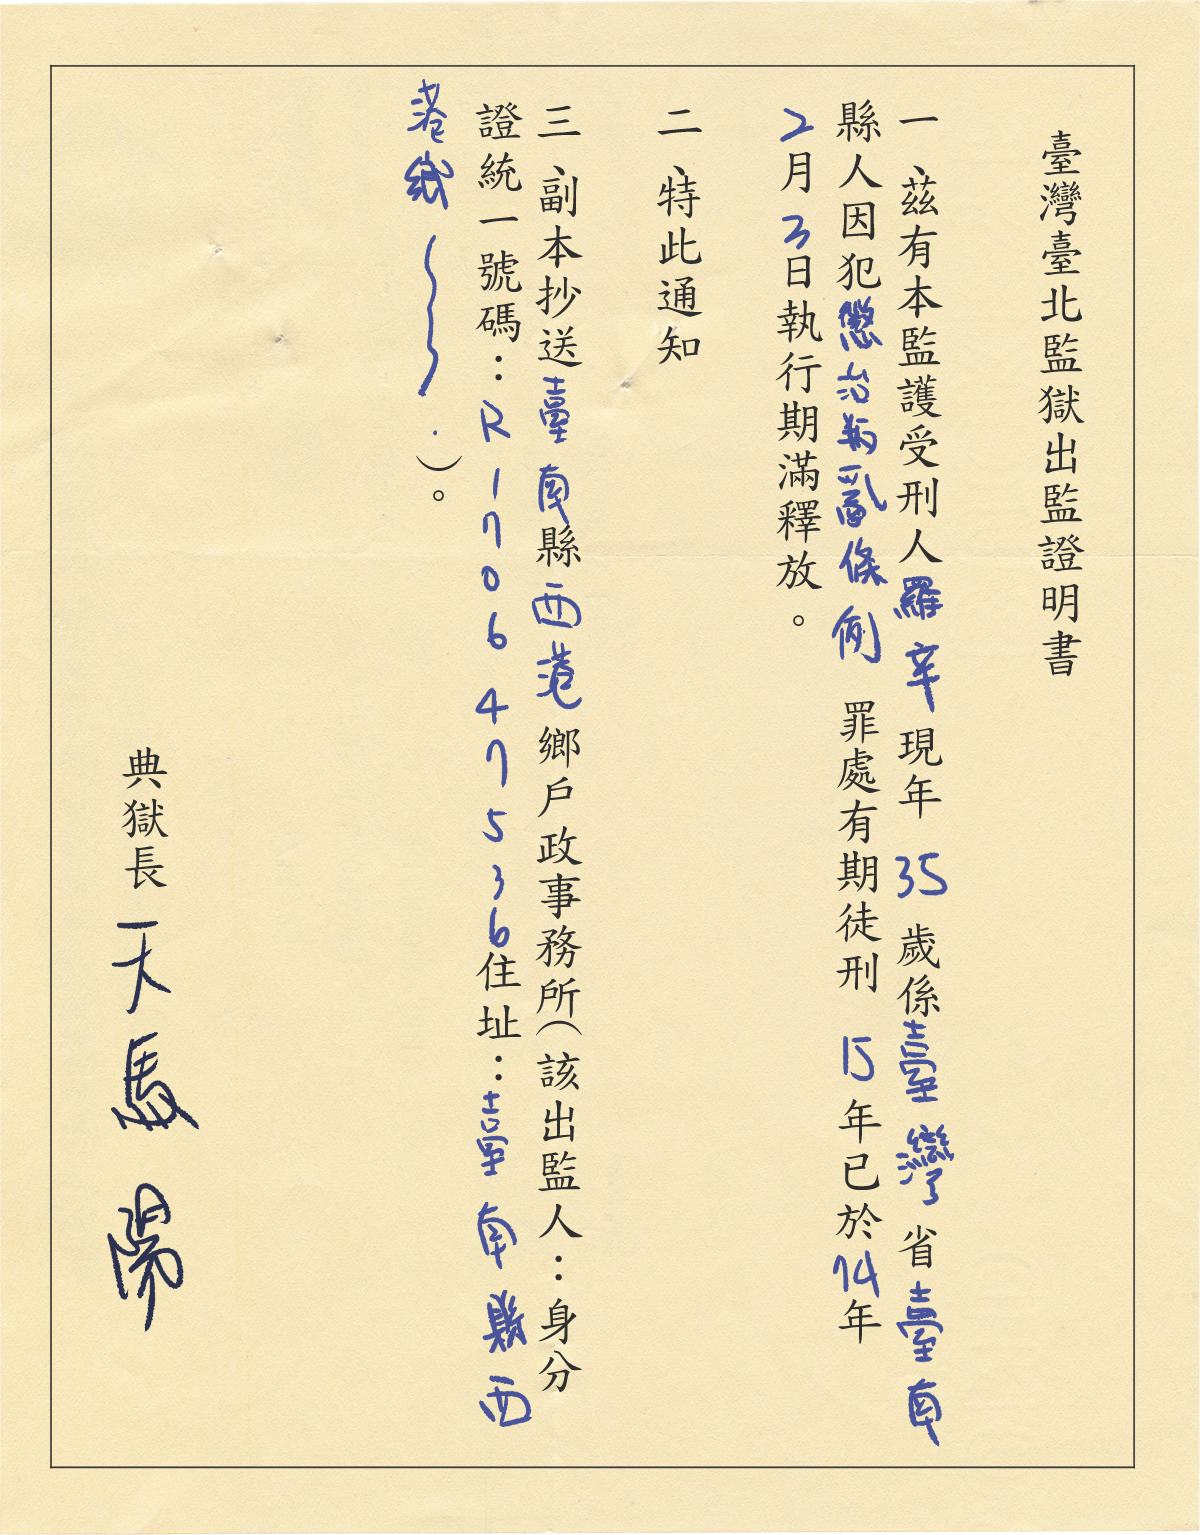 臺灣臺北監獄出監證明書
一、茲有本監護受刑人羅辛現年35歲係臺灣省臺南
縣人因犯懲治叛亂條例罪處有期徒刑15年已於74年
2月3日執行期滿釋放。
二、特此通知
三、副本抄送臺南縣西港鄉戶政事務所（該出監人：身分
證統一號碼：R170647536住址：臺南縣西
港鄉～～.）。
典獄長天馬陽